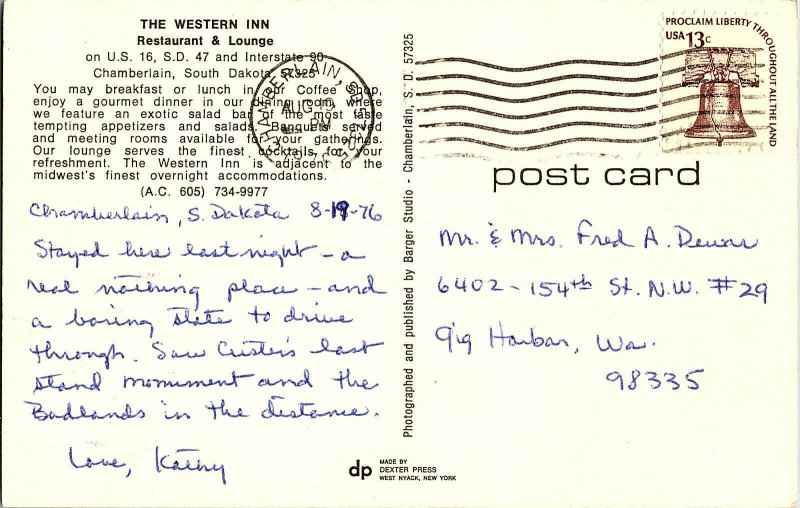 THE WESTERN INN
Restaurant & Lounge
on U.S. 16, S.D. 47 and Interstate 90
Chamberlain, South Dakota 57325
You may breakfast or lunch in our Coffee Shop,
enjoy a gourmet dinner in our dining room where
we feature an exotic salad bar of the most taste
tempting appetizers and salads. Banquets served
and meeting rooms available for your gatherings.
Our lounge serves the finest cocktails for your
refreshment. The Western Inn is adjacent to the
midwest's finest overnight accommodations.
(A.C. 605) 734-9977
Chamberlain, S. Dakota 8-19-76
Stayed here last night - a
real nothing place - and
a boring state to drive
through. Saw Custer's last
stand monument and the
Badlands in the distance.
Love, Kathy
Photographed and published by Barger Studio - Chamberlain, S. D. 57325
dp
MADE BY
DEXTER PRESS
WEST NYACK, NEW YORK
CHAMBERLAIN, SD
AUG 19
PM
PROCLAIM LIBERTY THROUGHOUT ALL THE LAND
USA 13c
post card
Mr. & Mrs. Fred A. Dewar
6402 - 154th St. N.W. #29
Gig Harbor, Wa.
98335